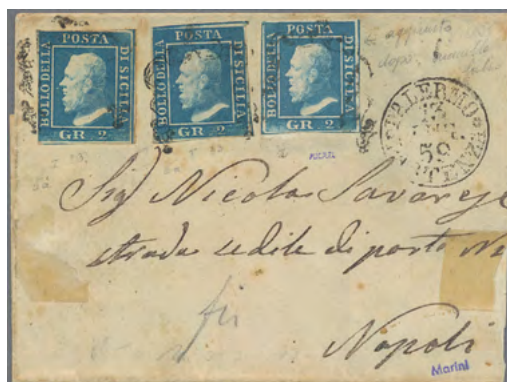 POSTA
BOLLO DELLA
DI SICILIA
GR 2
POSTA
BOLLO DELLA
DI SICILIA
GR 2
POSTA
BOLLO DELLA
DI SICILIA
GR 2
aggiunto
dopo
PALERMO
13
59
Sig Nicola Savarese
strada sedile di porto
Napoli
Marini